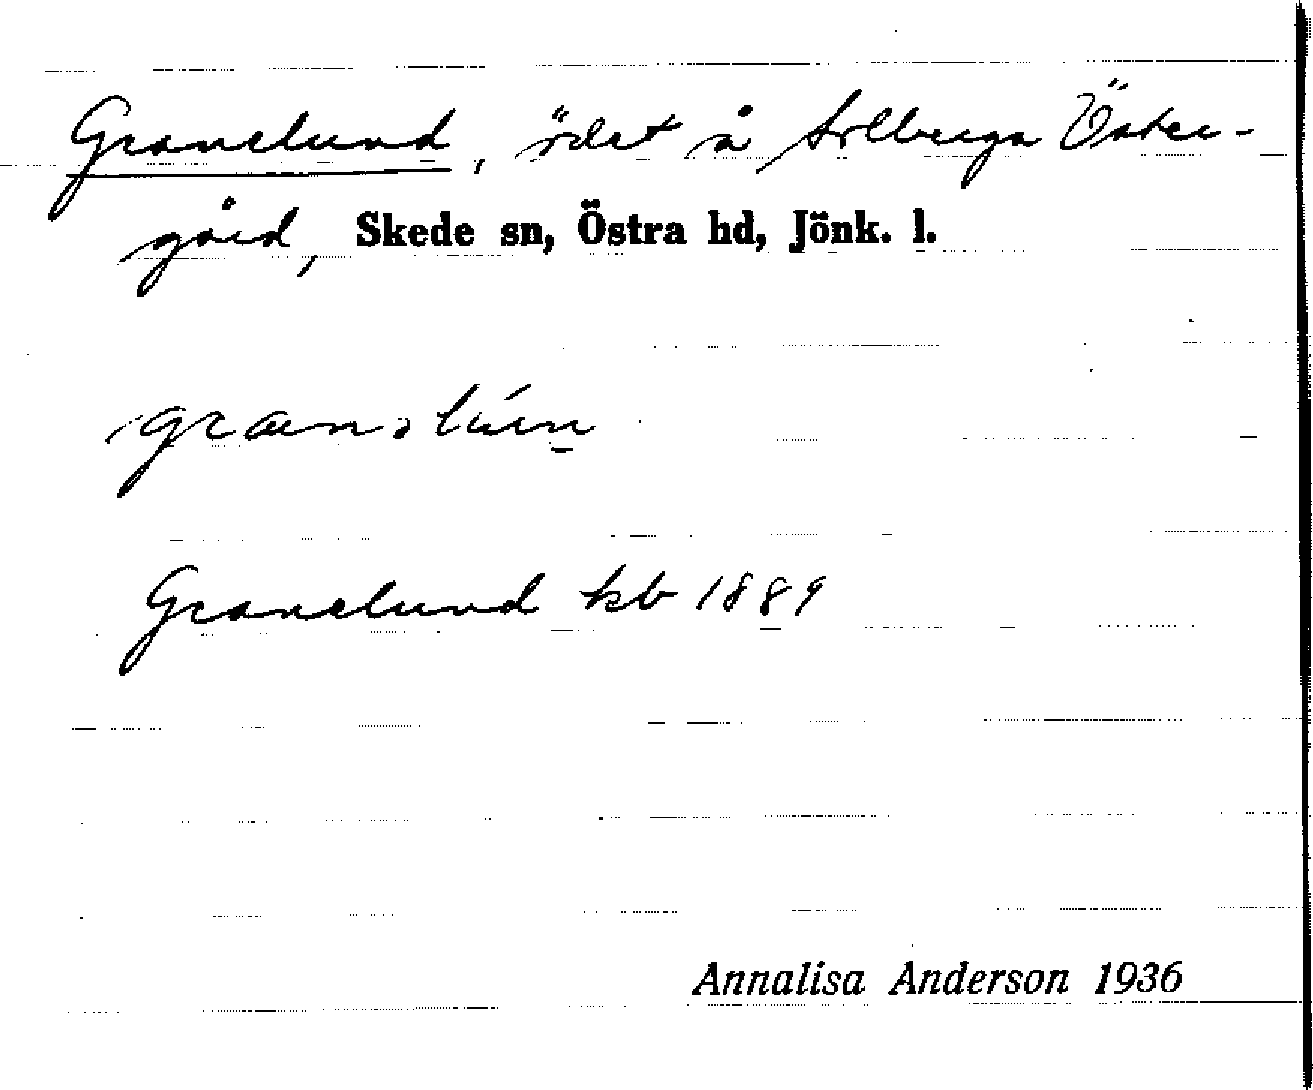 Granelund, ödet å Solberga Öster-
gård, Skede sn, Östra hd, Jönk. l.
Granelund kb 1889
Annalisa Anderson 1936